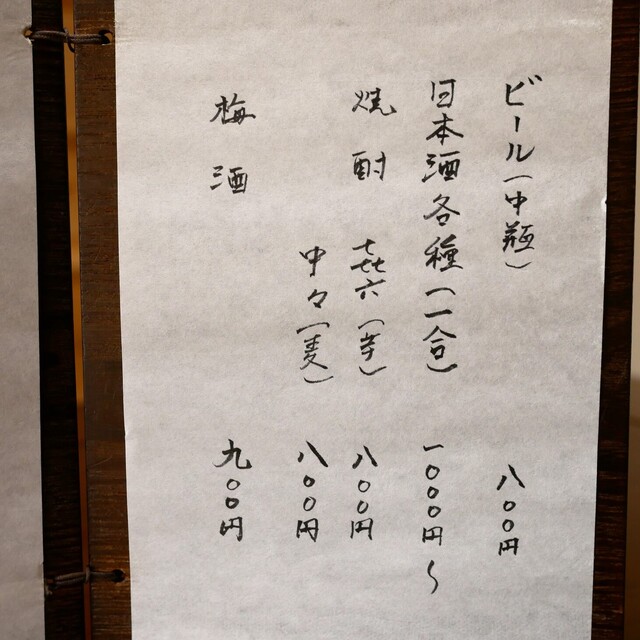 ビール(中瓶) 八〇〇円
日本酒各種(一合) 一〇〇〇円〜
焼酎 㐂六(芋) 八〇〇円
中々(麦) 八〇〇円
梅酒 九〇〇円